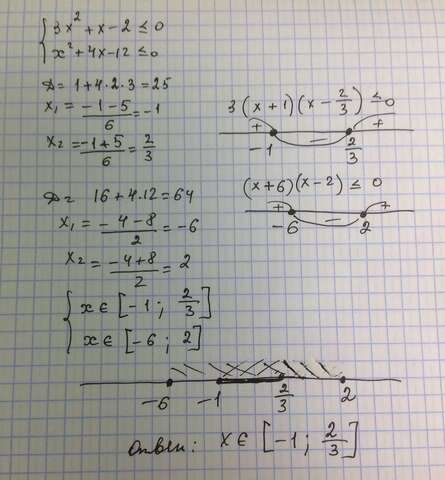 { 3x² + x - 2 ≤ 0
x² + 4x - 12 ≤ 0
D = 1 + 4 · 2 · 3 = 25
x₁ = (-1-5)/6 = -1
x₂ = (-1+5)/6 = 2/3
3(x+1)(x - 2/3) ≤ 0
+ - +
-1 2/3
D = 16 + 4 · 12 = 64
x₁ = (-4-8)/2 = -6
x₂ = (-4+8)/2 = 2
(x+6)(x-2) ≤ 0
+ - +
-6 2
{ x ∈ [-1; 2/3]
x ∈ [-6; 2]
-6 -1 2/3 2
Ответ: x ∈ [-1; 2/3]